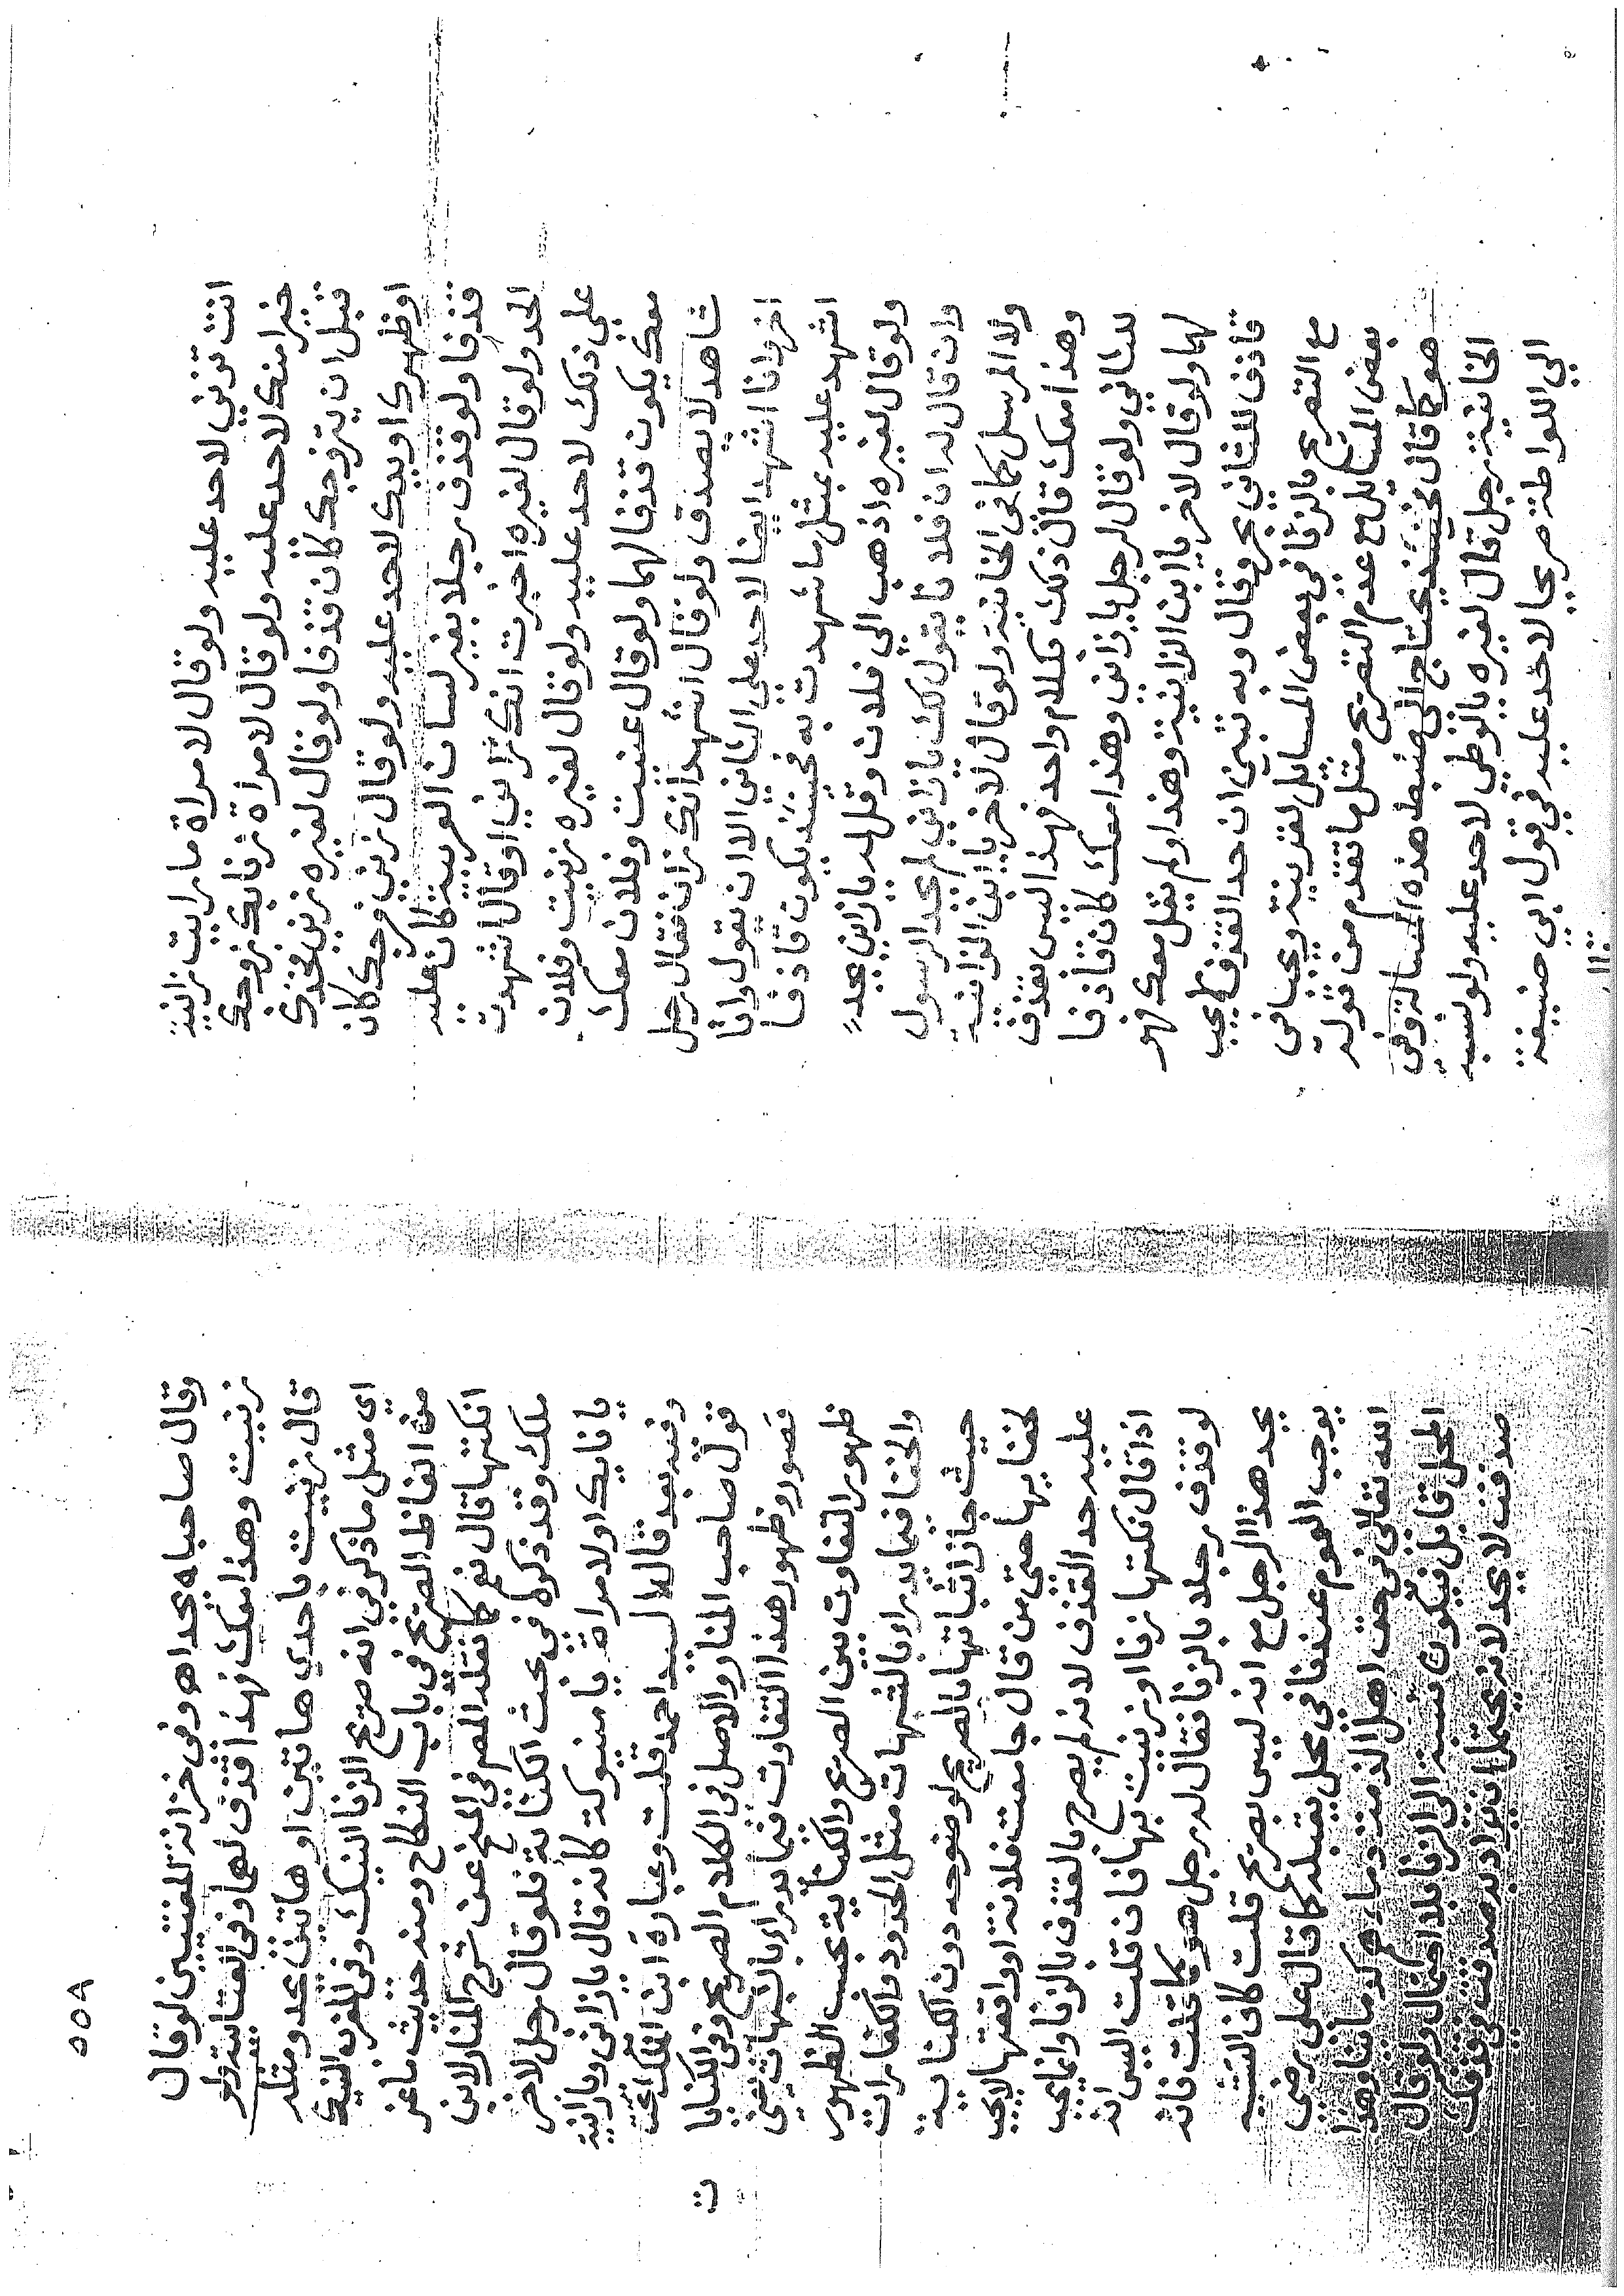 انت تزني لاحد عليه ولو قال لامراة ما رايت زانية
خيرا منك لاحد عليه ولو قال لامراة زنا بك زوجك
قبل ان يتزوجك كان قذفا ولو قال لغيره زني فخذك
او ظهرك او يدك لاحد عليه ولو قال زني فرجك كان
قذفا ولو قذف رجلا بغير لسان العربية كان عليه
الحد ولو قال لغيره اخبرت انك زاني او قال اشهدت
على ذلك لاحد عليه ولو قال لغيره زنيت وفلان
معك يكون قذفا لهما ولو قال عنيت وفلان معك
شاهد لا يصدق ولو قال اشهد انك زان فقال رجل
اخر وانا اشهد ايضا لاحد على الثاني الا ان يقول وانا
اشهد عليه بمثل ما شهدت به فحينئذ يكون قاذفا
ولو قال لغيره اذهب الي فلان وقل له يا زاني يحد
وان قال له ان فلانا يقول لك يا زاني لم يحد الرسول
ولا المرسل كما في الخانية ولو قال لاخر يا ابن الزانية
وهذا معك قال ذلك بكلام واحد فهذا ليس بقذف
للثاني ولو قال لرجل يا زاني وهذا معك كان قاذفا
لهما ولو قال لاخر يا ابن الزانية وهذا ولم يقل معك فهو
قاذف للثاني بحر وقال وبه تبين ان حد القذف يجب
مع التصريح بالزنا في بعض المسايل لقرينة ويجب في
بعض المسايل مع عدم التصريح مثلها تقدم من قوله
هو كما قال فحينئذ يحتاج الى ضبط هذه المسالة وفي
الخانية رجل قال لغيره يا لوطي لاحد عليه ولو نسبه
الي اللواطة صريحا لاحد عليه في قول ابي حنيفة
وقال صاحباه يحد اهـ وفي خزانة المفتيين لو قال
زنيت وهذا معك فهذا قذف لهما وفي العتابية ولو
قال زنيت باحدي هاتين او هاتين يحد ومثله
اي مثل ما ذكر في انه صريح الزنا النيك وفي المغرب النيك
من الفاظ الصريح في باب النكاح ومنه حديث ماعز
انكتها قال نعم كما نقله المص في المنح عن شرح المنار لابن
ملك وقد ذكره في بحث الكناية فلو قال رجل لاخر
يا نايك او لامراة يا منيوكة كانه قال يا زاني ويا زانية
وفيه بعد قال السيد احمد قلت وعبارة ابن الملك تحت
قول صاحب المنار والاصل في الكلام الصريح وفي الكناية
قصور وظهور هذا التفاوت فيما يدراء بالشبهات يعني
ظهور التفاوت بين الصريح والكناية بحسب الظهور
والخفا فيما يدراء بالشبهات مثل الحدود والكفارات
حيث جاز اثباتها بالصريح لوضوحه دون الكناية
لخفايها حتى من قال جامعت فلانة او واقعتها لا يجب
عليه حد القذف لانه لم يصرح بالقذف بالزنا وانما يجب
اذا قال نكتها زنا او زنيت بها فان قلت اليس انه
لو قذف رجلا بالزنا فقال له رجل هو كما قلت فانه
يحد هذا الرجل مع انه ليس بصريح قلت كاف التشبيه
يوجب العموم عندنا في محل يقبله كما قال علي رضي
الله تعالى في حق اهل الذمة دماؤهم كدمائنا وهذا
المحل قابل فيكون نسبة الى الزنا بلا احتمال ولو قال
صدقت لا يحد لانه يحتمل ان يراد به صدقت في قذفك
٥٥٨